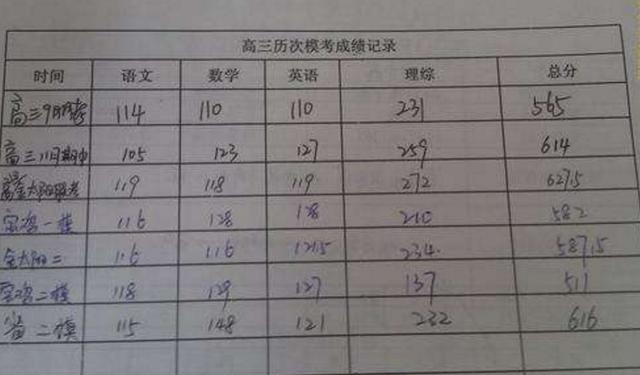 高三历次模考成绩记录
时间 语文 数学 英语 理综 总分
高三9月月考 114 110 110 231 565
高三11月期中 105 123 127 259 614
金太阳联考 119 118 119 272 627.5
宝鸡一模 116 128 128 210 582
金太阳二 116 116 121.5 234 587.5
宝鸡二模 118 129 127 137 511
省二模 115 148 121 232 616